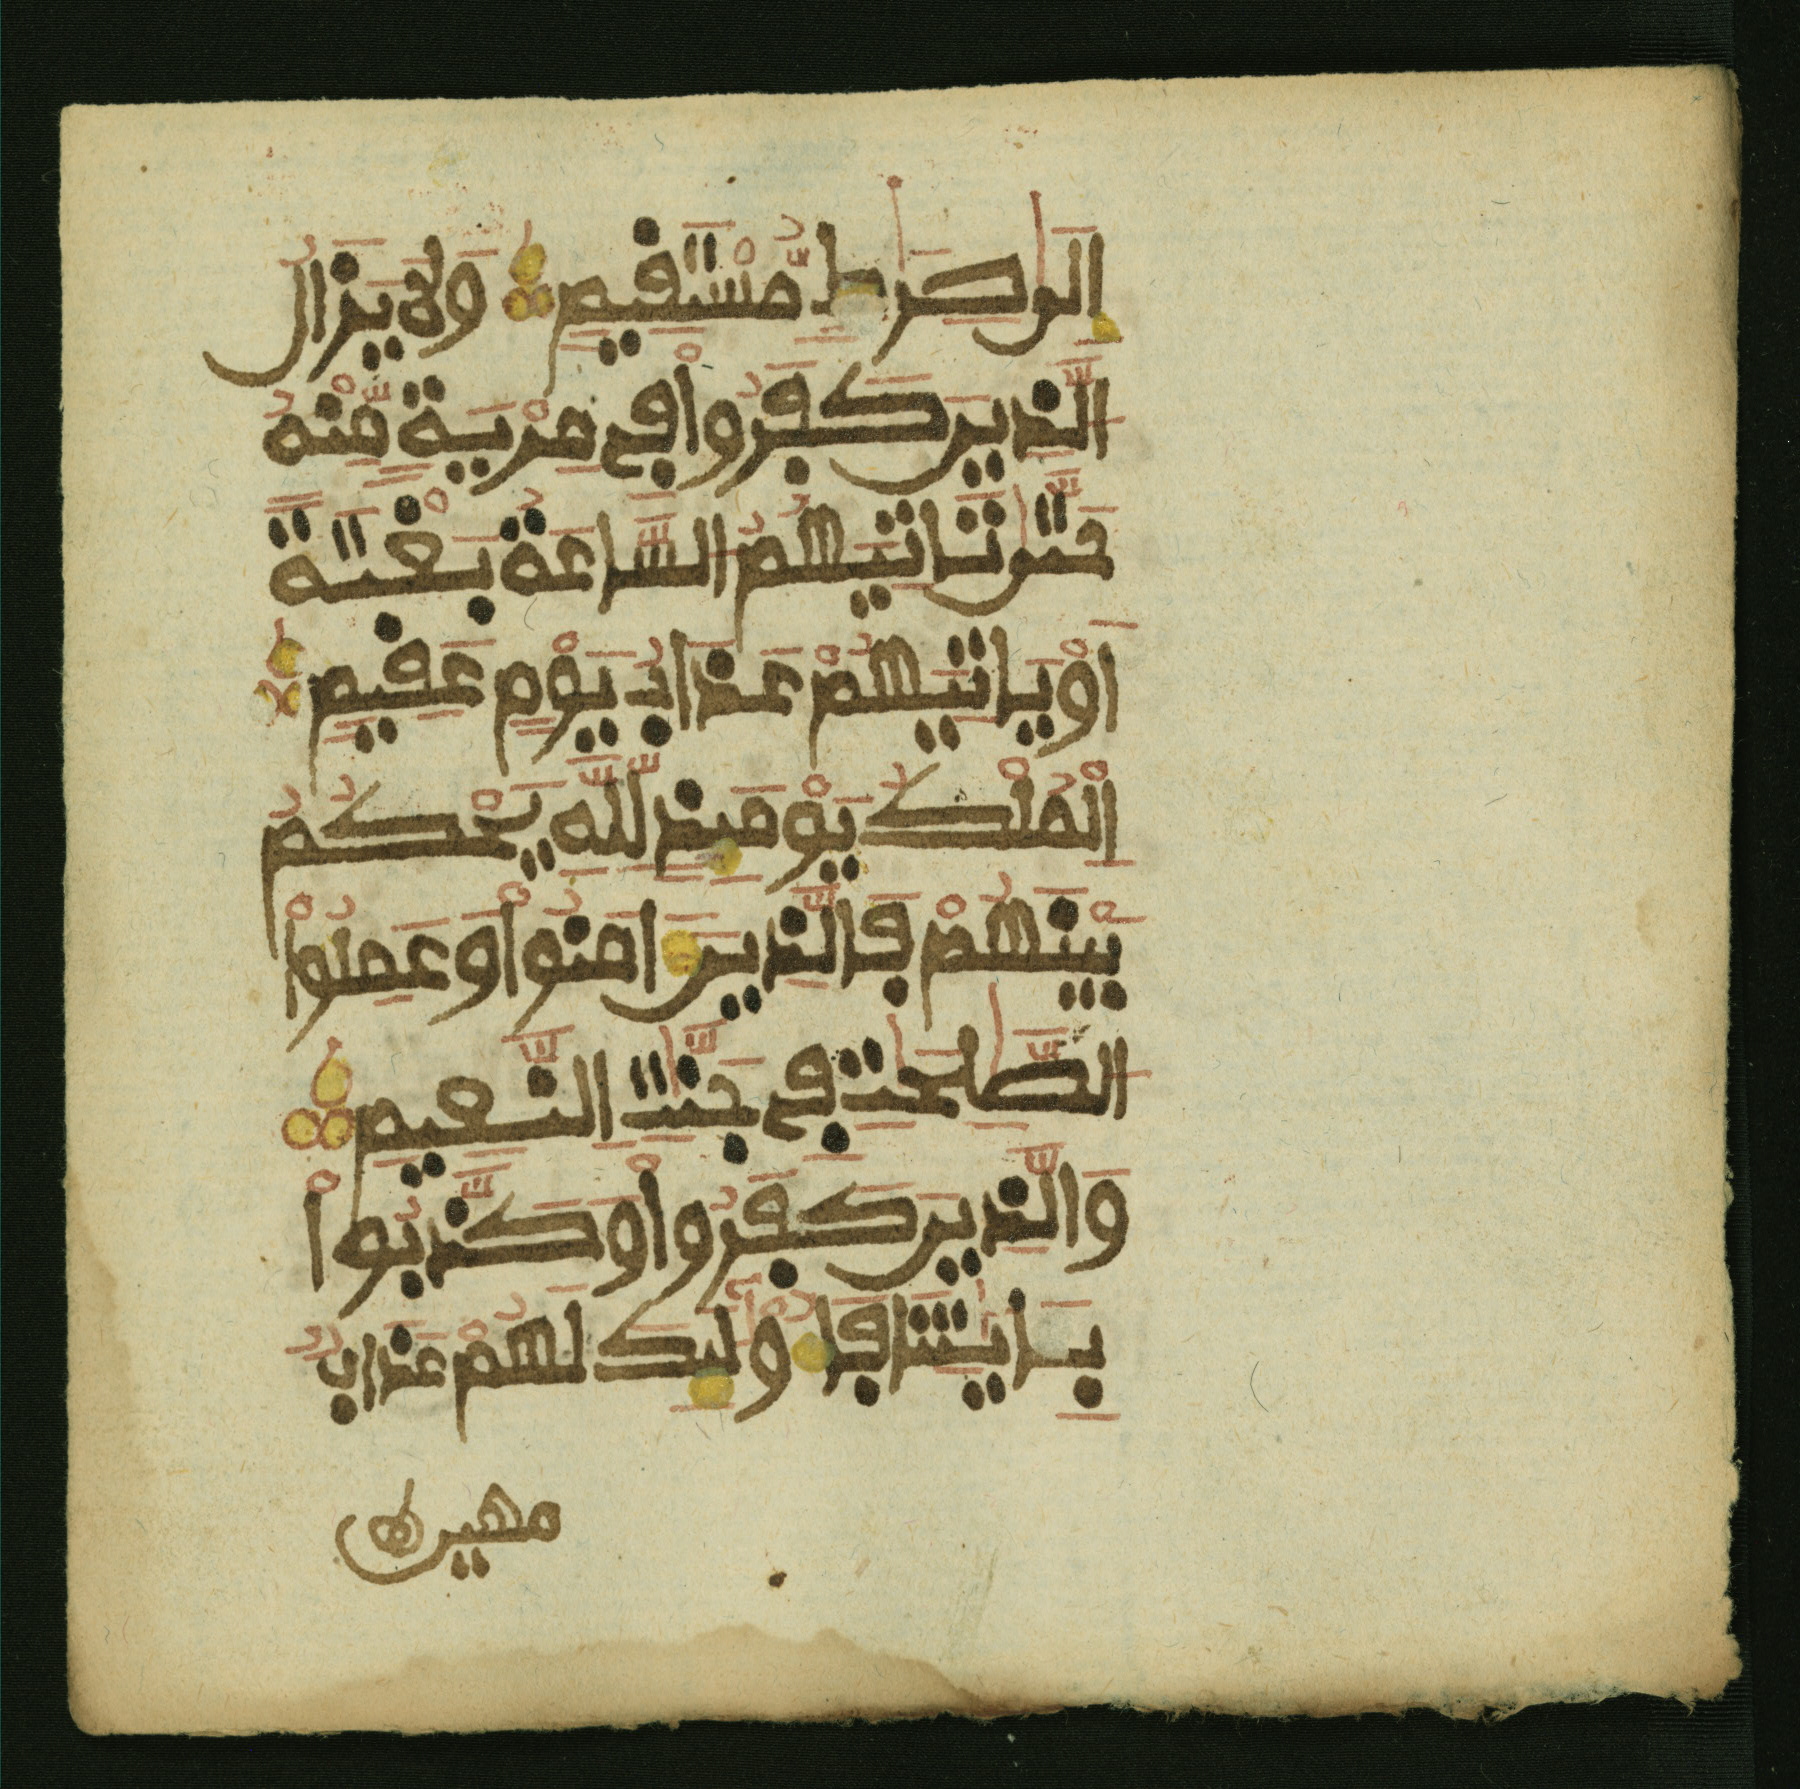 الى صرط مستقيم ولا يزال
الذين كفروا في مرية منه
حتى تاتيهم الساعة بغتة
او ياتيهم عذاب يوم عقيم
الملك يومئذ لله يحكم
بينهم فالذين امنوا وعملوا
الصلحت في جنت النعيم
والذين كفروا وكذبوا
بـايتنا فاولئك لهم عذاب
مهين